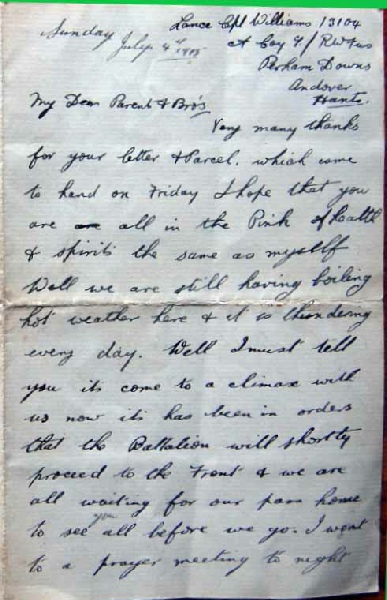 Lance Cpl Williams 13104
Sunday July 4th 1915
A Coy 9/RWFus
Perham Downs
Andover
Hants.
My Dear Parent & Bro's
Very many thanks
for your letter & Parcel. which came
to hand on Friday I hope that you
are all in the Pink of health
& spirits the same as myself
Well we are still having boiling
hot weather here & it is thundering
every day. Well I must tell
you its come to a climax with
us now its has been in orders
that the Battalion will shortly
proceed to the Front & we are
all waiting for our pass home
to see you all before we go. I went
to a prayer meeting to night